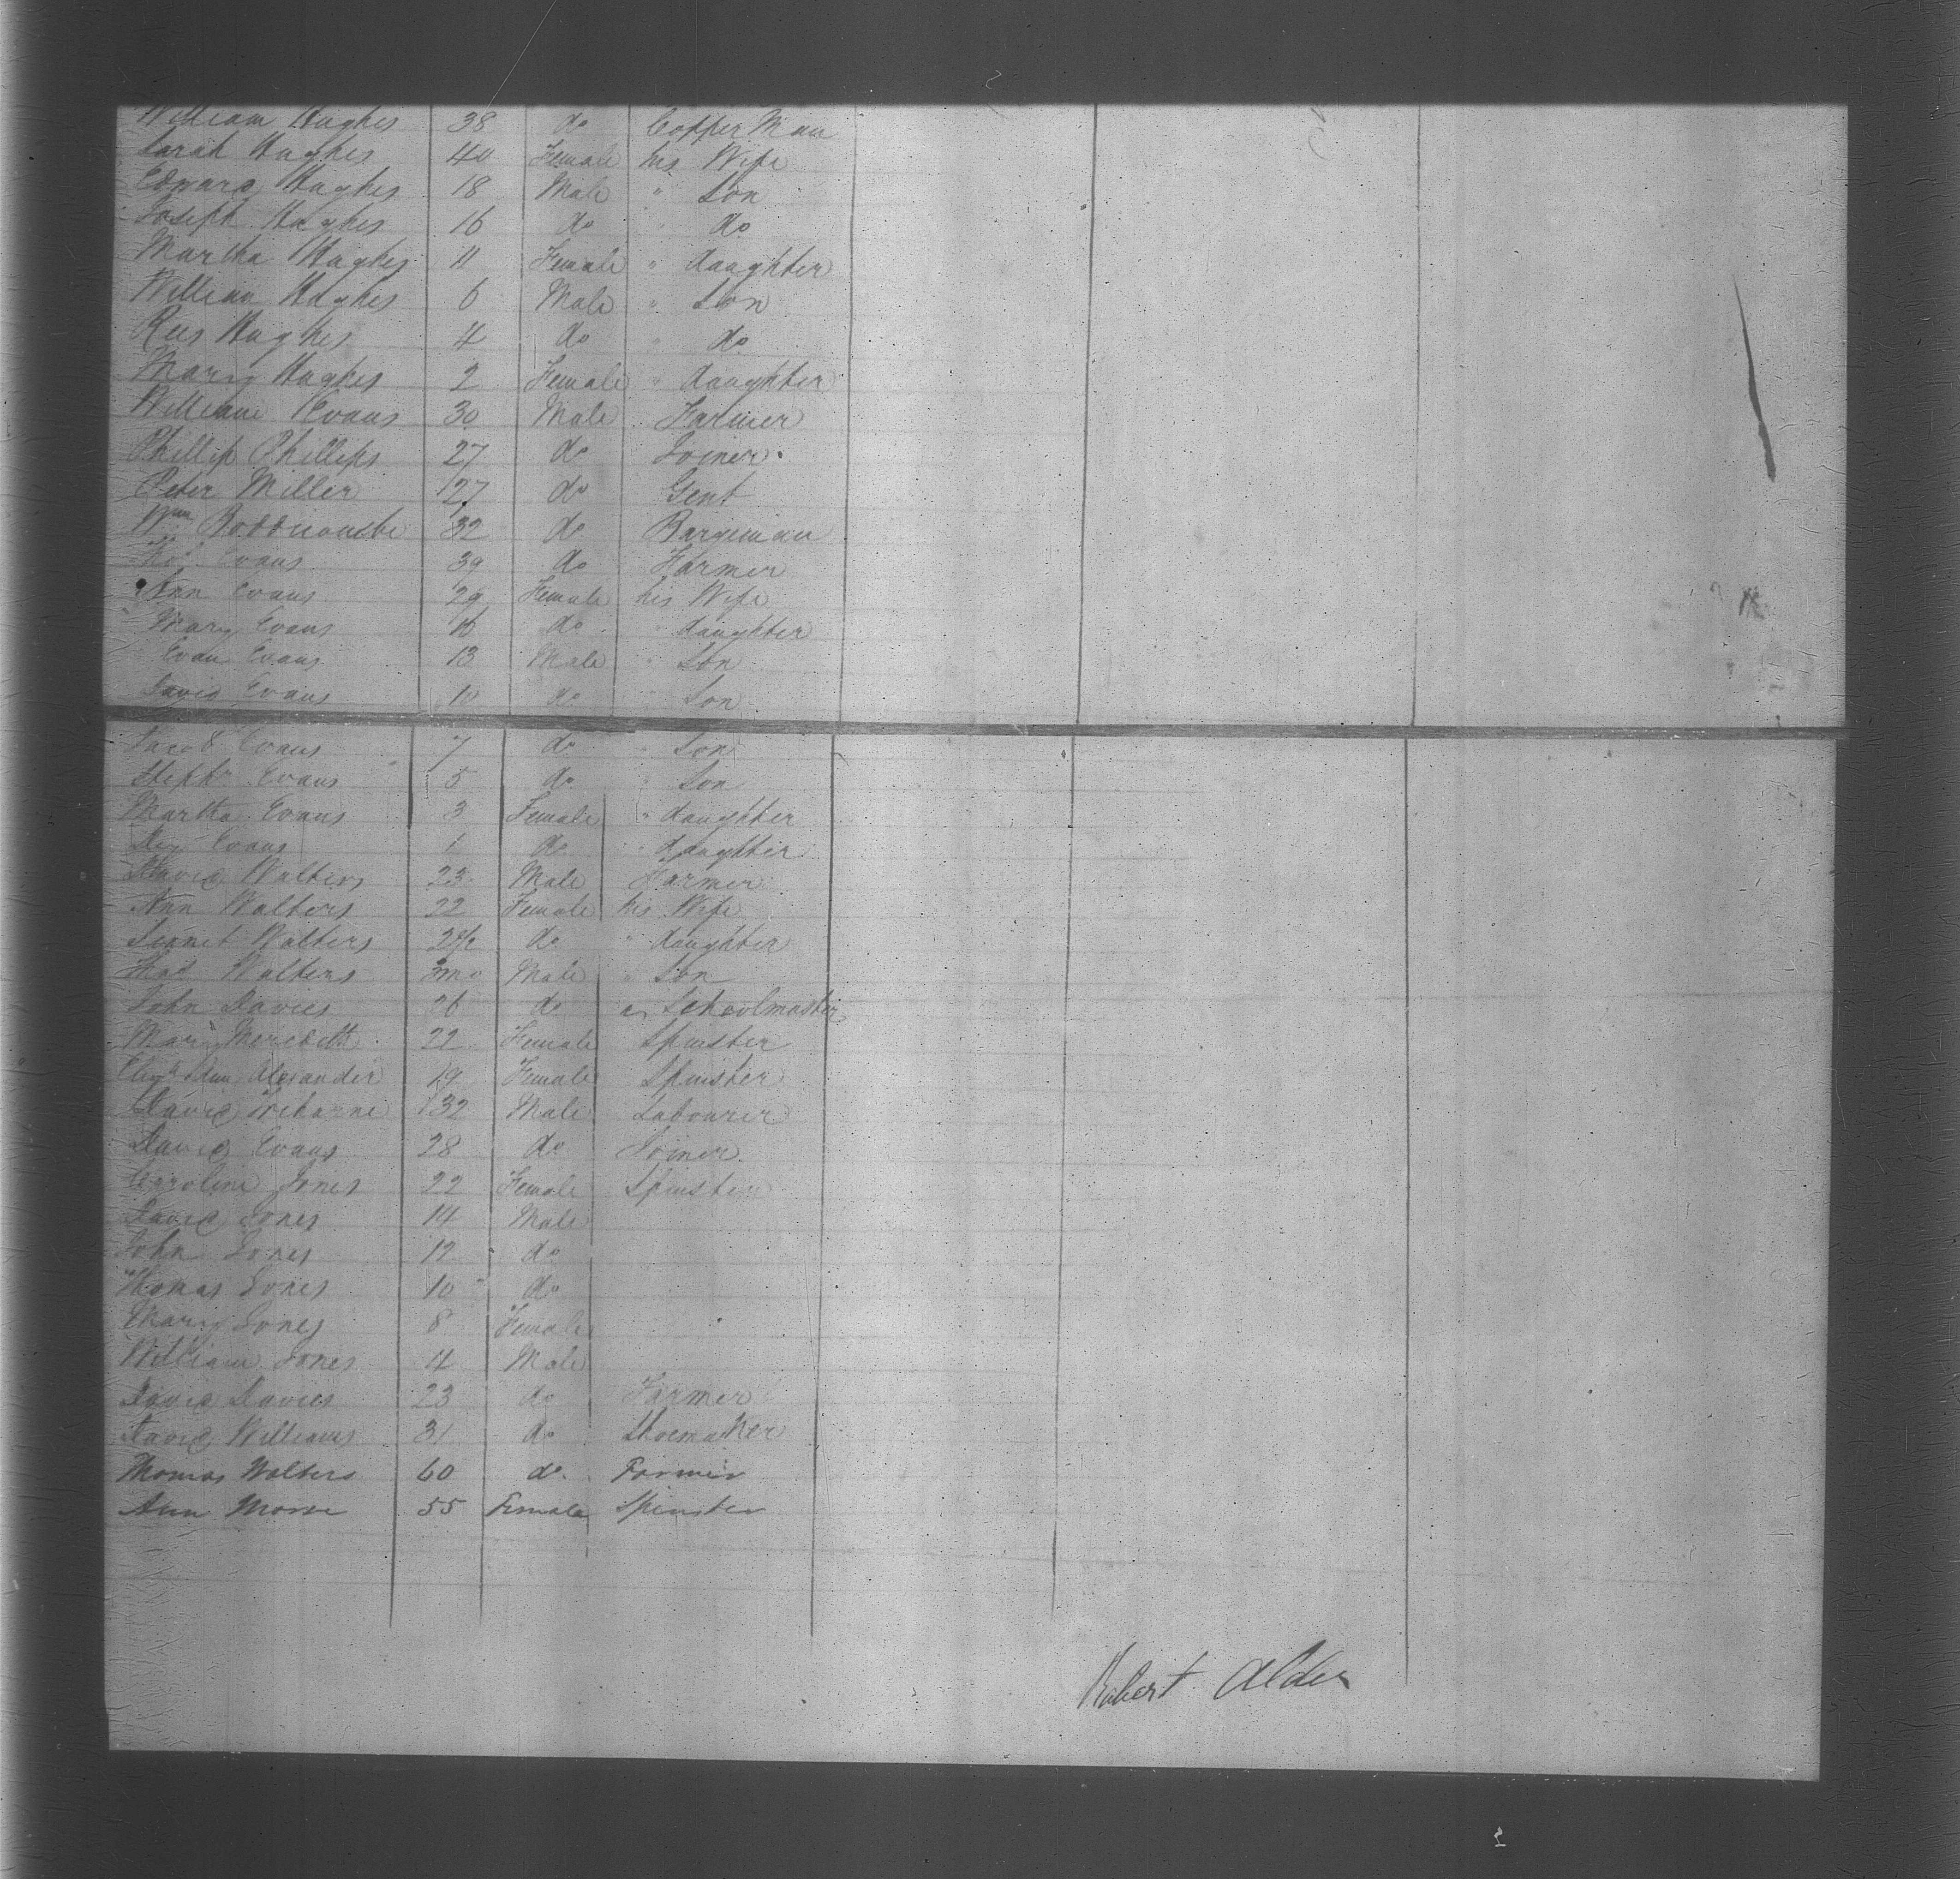 William Hughes 38 do Copper Man
Sarah Hughes 40 Female his Wife
Edward Hughes 18 Male " Son
Joseph Hughes 16 do " do
Martha Hughes 11 Female " daughter
William Hughes 6 Male " Son
Rees Hughes 4 do " do
Mary Hughes 2 Female " daughter
William Evans 30 Male Farmer
Phillip Phillips 27 do Joiner
Peter Miller 27 do Gent
Wm 32 do Bargeman
Thos Evans 39 do Farmer
Ann Evans 29 Female his Wife
Mary Evans 16 do " daughter
Evan Evans 13 Male " Son
David Evans 10 do " Son
Jacob Evans 7 do " Son
Stephn Evans 5 do " Son
Martha Evans 3 Female " daughter
Evans 1 do " daughter
David Walters 23 Male Farmer
Ann Walters 22 Female his Wife
Jennet Walters 2 1/2 do " daughter
Thos Walters 3mo Male " Son
John Davies 26 do a Schoolmaster
Mary Meredith 22 Female Spinster
Elizth Ann Alexander 19 Female Spinster
David Treharne 32 Male Labourer
David Evans 28 do Joiner
Caroline Jones 22 Female Spinster
David Jones 14 Male
John Jones 12 do
Thomas Jones 10 do
Mary Jones 8 Female
William Jones 4 Male
David Davies 23 do Farmer
David Williams 31 do Shoemaker
Thomas Walters 60 do Farmer
Ann Morse 55 Female Spinster
Robert Alder
2